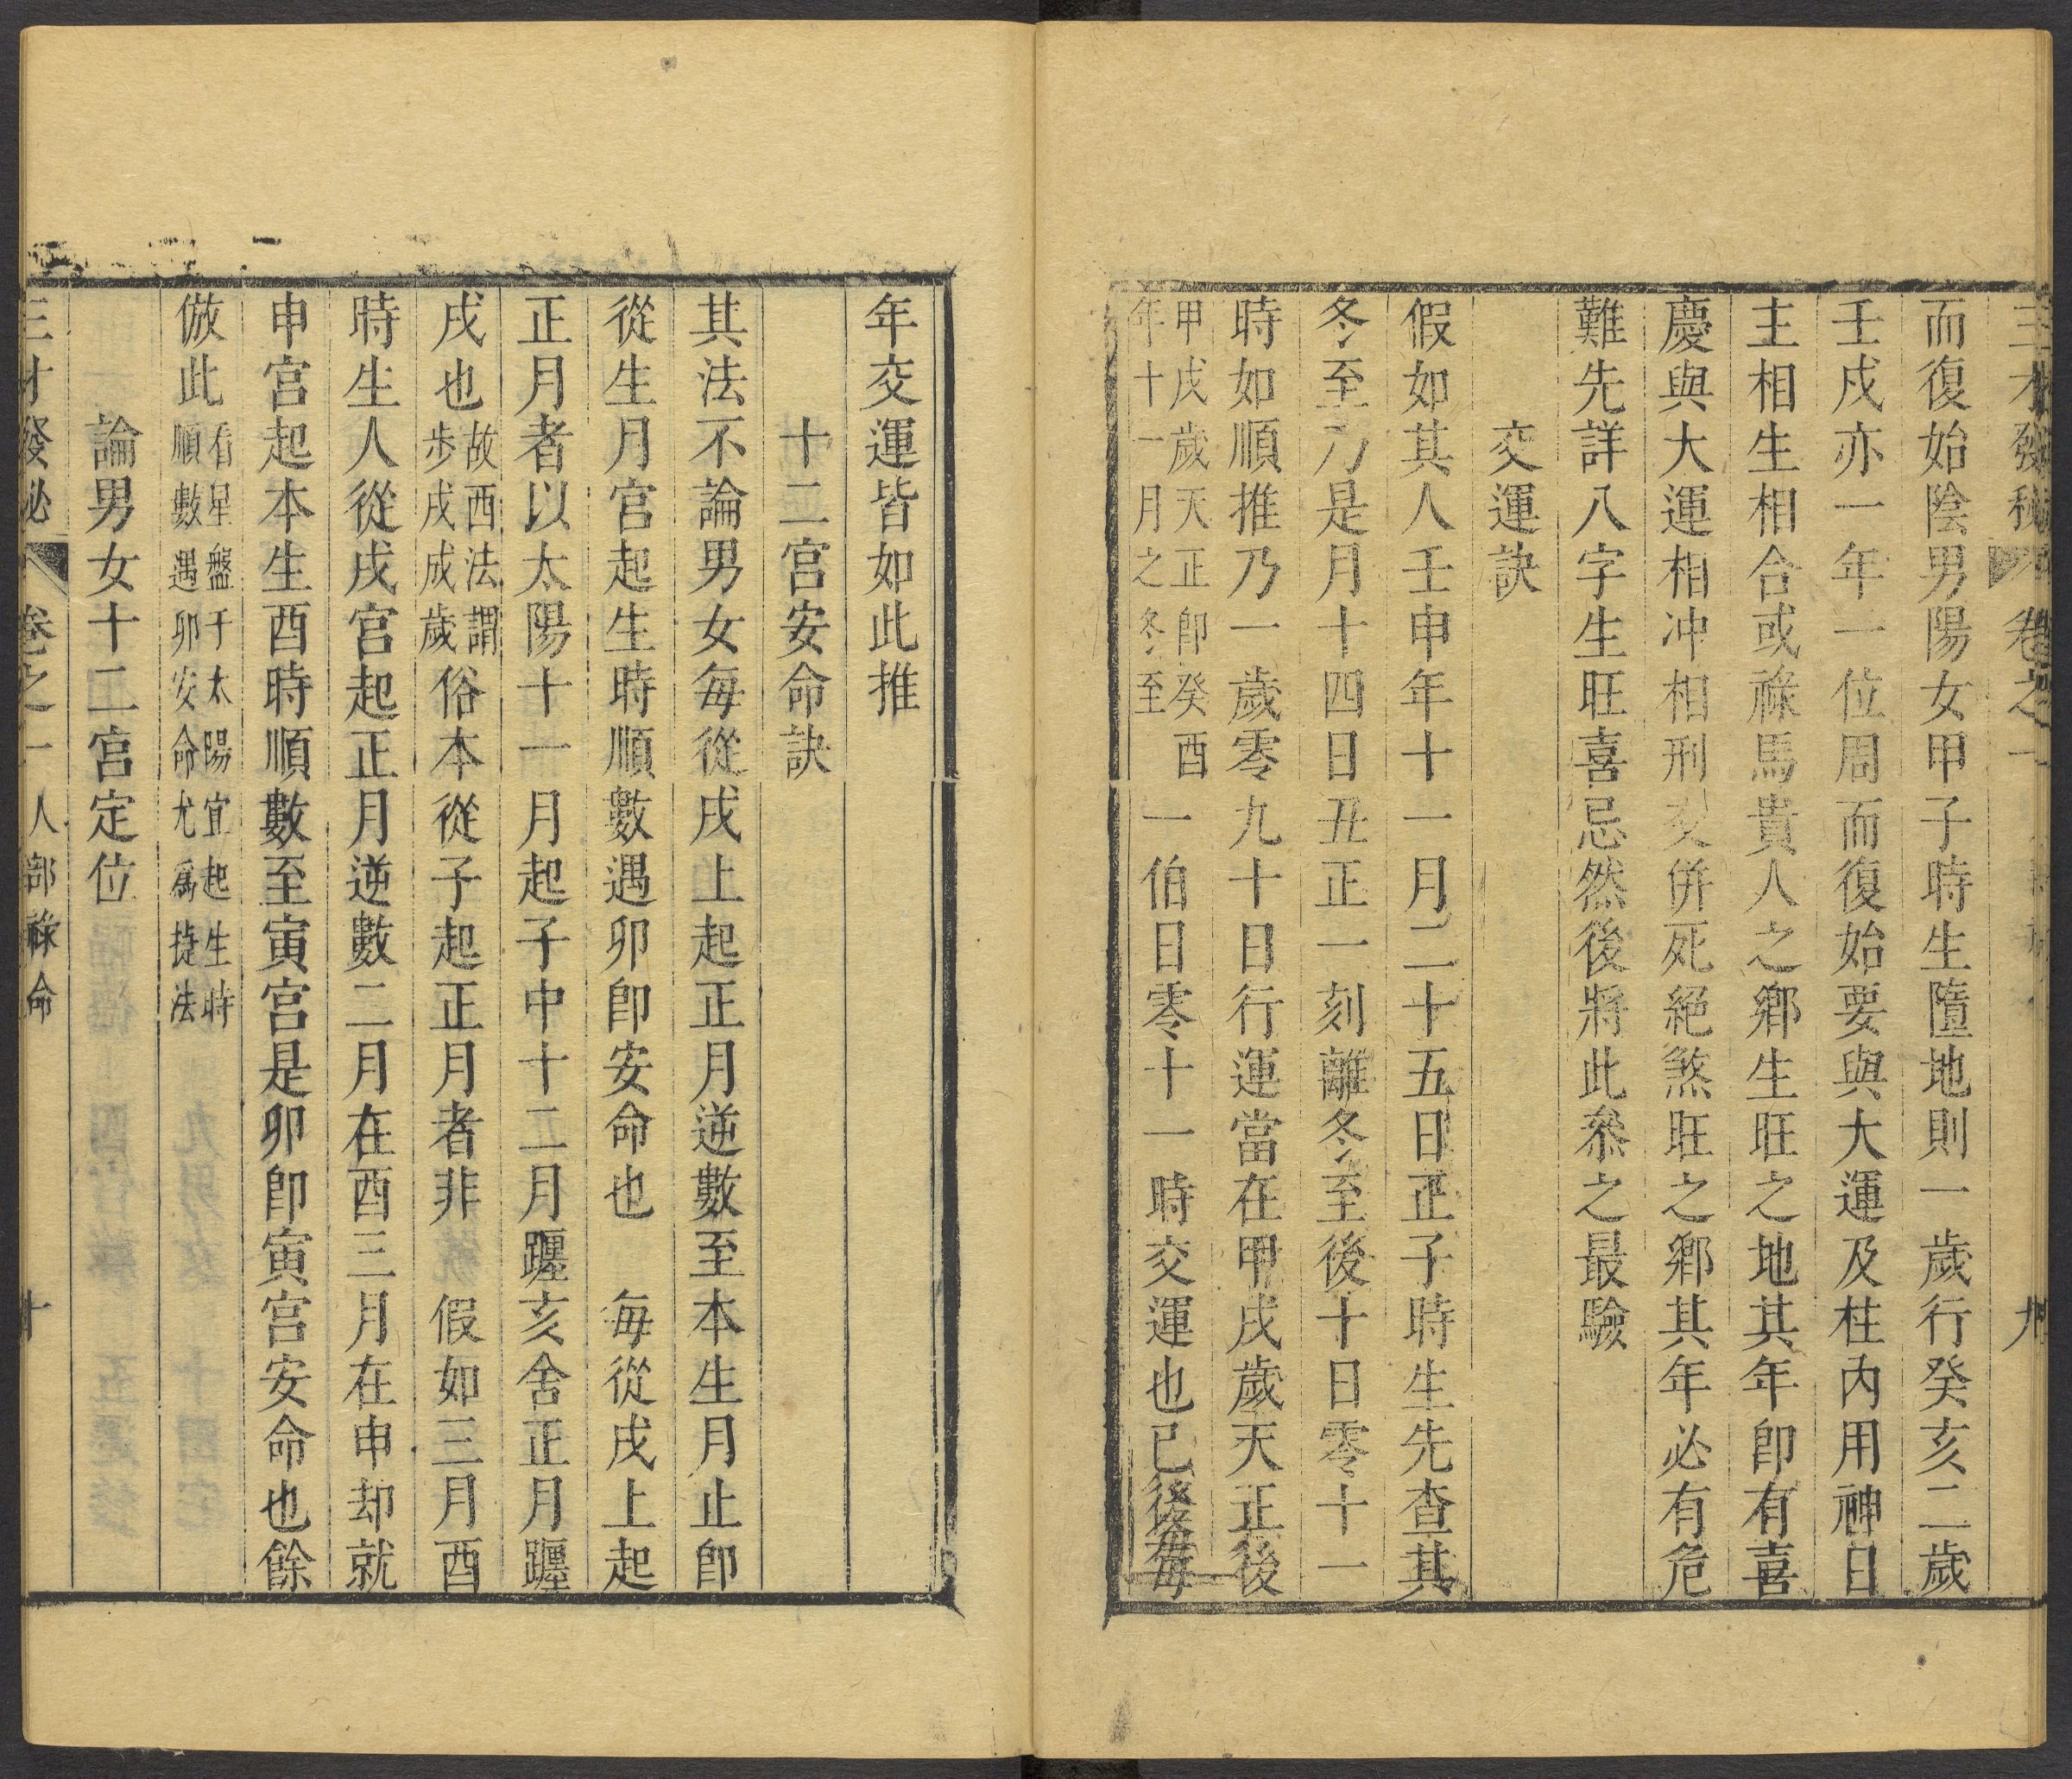 三才發秘 卷之一 九
而復始陰男陽女甲子時生墮地則一歲行癸亥二歲
壬戌亦一年一位周而復始要與大運及柱內用神日
主相生相合或祿馬貴人之鄉生旺之地其年卽有喜
慶與大運相冲相刑交併死絕煞旺之鄉其年必有危
難先詳八字生旺喜忌然後將此叅之最驗
交運訣
假如其人壬申年十一月二十五日正子時生先查其
冬至乃是月十四日丑正一刻離冬至後十日零十一
時如順推乃一歲零九十日行運當在甲戌歲天正後
甲戌歲天正卽癸酉
年十一月之冬至
一伯日零十一時交運也已後每
年交運皆如此推
十二宮安命訣
其法不論男女每從戌上起正月逆數至本生月止卽
從生月宮起生時順數遇卯卽安命也 每從戌上起
正月者以太陽十一月起子中十二月躔亥舍正月躔
戌也
故西法謂
步戌成歲
俗本從子起正月者非 假如三月酉
時生人從戌宮起正月逆數二月在酉三月在申却就
申宮起本生酉時順數至寅宮是卯卽寅宮安命也餘
倣此
看星盤千太陽宜起生時
順數遇卯安命尤為捷法
論男女十二宮定位
三才發秘 卷之一 人部祿命 十